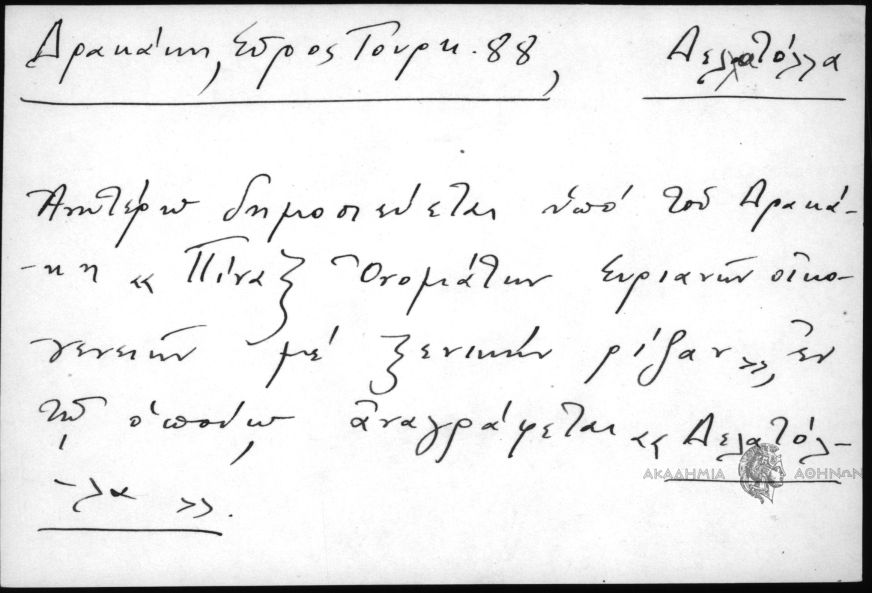 Δρακάκη, Σῦρος Τουρκ. 88,
Δελατόλλα
Ἀνωτέρω δημοσιεύεται ὑπό τοῦ Δρακά-
-κη «Πίναξ Ὀνομάτων Συριανῶν οἰκο-
γενειῶν μέ ξενικήν ρίζαν», ἐν
τῷ ὁποίῳ ἀναγράφεται «Δελατόλ-
-λα».
ΑΚΑΔΗΜΙΑ ΑΘΗΝΩΝ